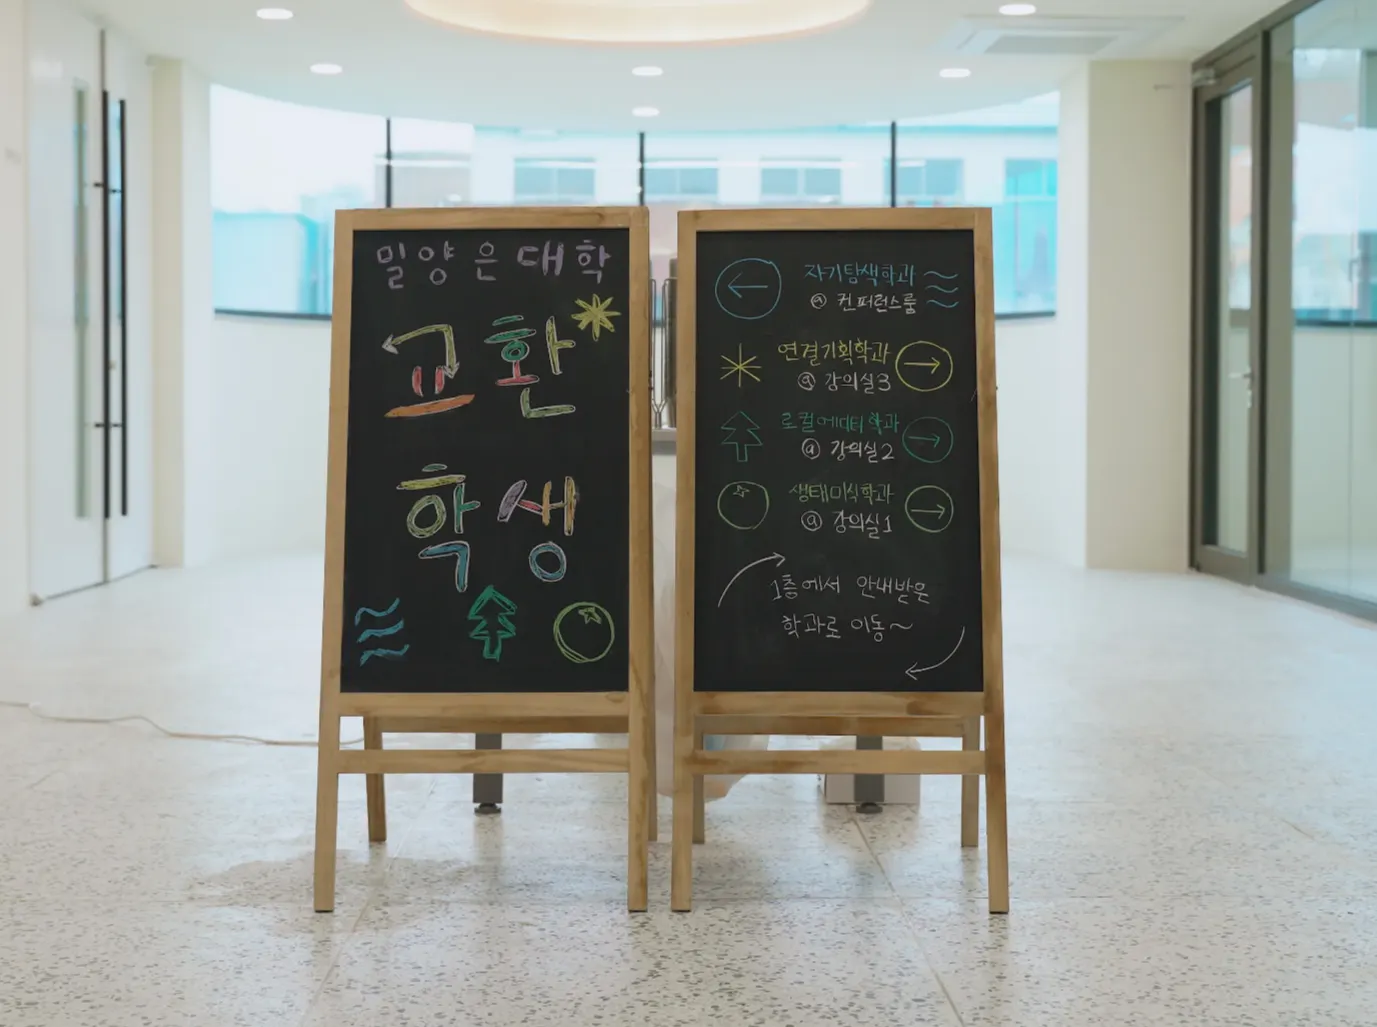 밀양은대학
교환
학생
자기탐색학과
@ 컨퍼런스룸
연결기획학과
@ 강의실3
로컬에디터학과
@ 강의실2
생태미식학과
@ 강의실1
1층에서 안내받은
학과로 이동~